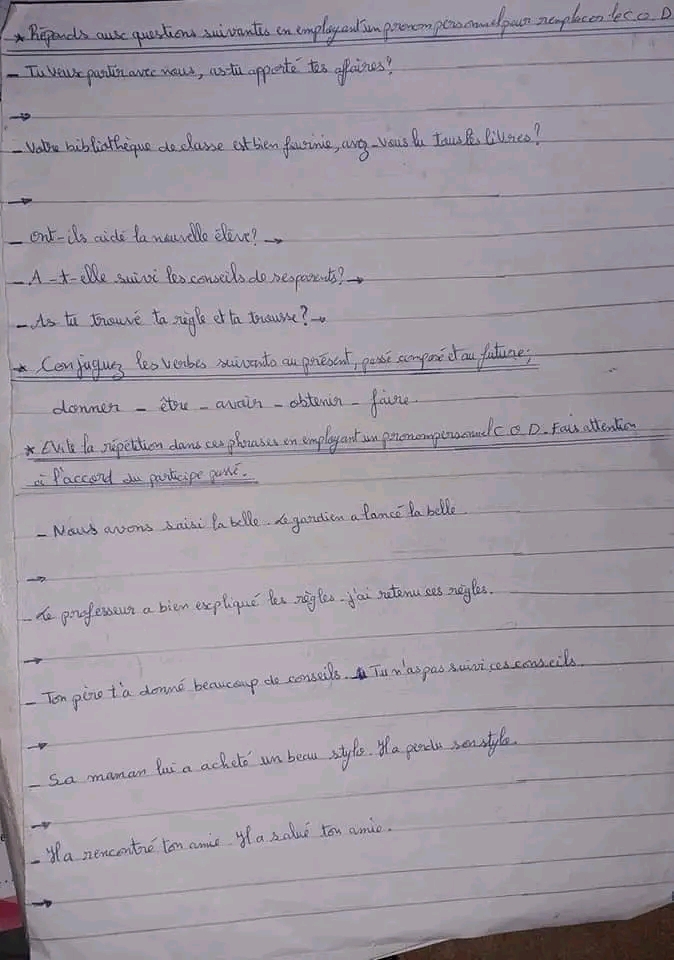 * Réponds aux questions suivantes en employant un pronom personnel pour remplacer le C.O.D
- Tu veux partir avec nous, as-tu apporté tes affaires?
→
- Votre bibliothèque de classe est bien fournie, avez-vous lu tous les livres?
→
- Ont-ils aidé la nouvelle élève? →
- A-t-elle suivi les conseils de ses parents? →
- As tu trouvé ta règle et ta trousse? →
* Conjuguez les verbes suivants au présent, passé composé et au future;
donner - être - avoir - obtenir - faire
* Evite la répétition dans ces phrases en employant un pronom personnel C.O.D. Fais attention
à l'accord du participe passé.
- Nous avons saisi la belle. Le gardien a lancé la belle.
→
- Le professeur a bien expliqué les règles. j'ai retenu ces règles.
→
- Ton père t'a donné beaucoup de conseils. Tu n'as pas suivi ces conseils.
→
- Sa maman lui a acheté un beau stylo. Il a perdu son stylo.
→
- Il a rencontré ton amie. Il a salué ton amie.
→